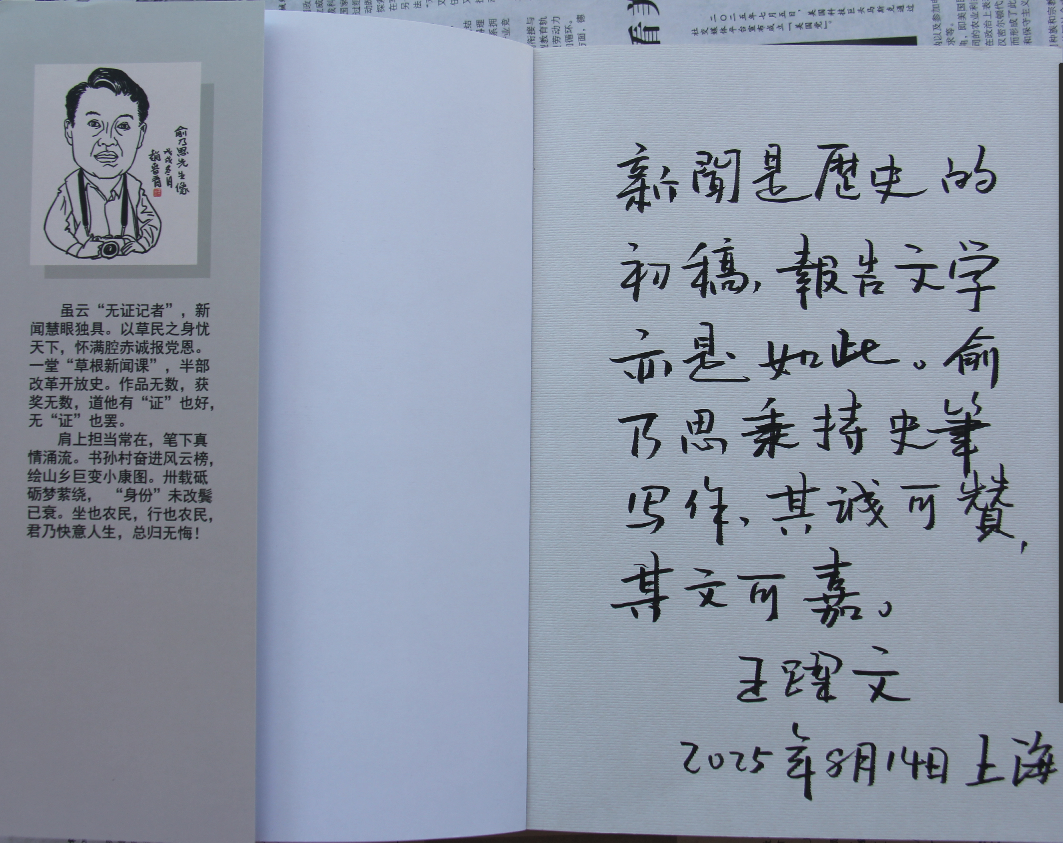 俞乃思先生像
虽云“无证记者”，新
闻慧眼独具。以草民之身忧
天下，怀满腔赤诚报党恩。
一堂“草根新闻课”，半部
改革开放史。作品无数，获
奖无数，道他有“证”也好，
无“证”也罢。
肩上担当常在，笔下真
情涌流。书孙村奋进风云榜，
绘山乡巨变小康图。卅载砥
砺梦萦绕，“身份”未改鬓
已衰。坐也农民，行也农民，
君乃快意人生，总归无悔！
新聞是歷史的
初稿，報告文学
亦是如此。俞
乃思秉持史筆
写作，其誠可贊，
其文可嘉。
王躍文
2025年8月14日上海